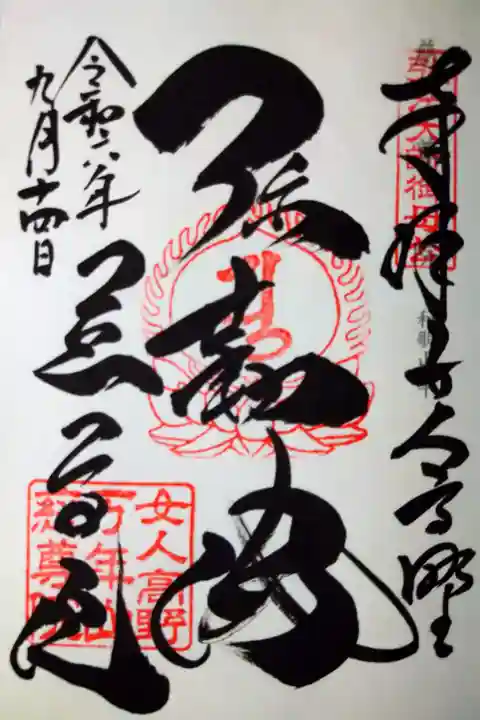 奉拝 女人高野
弥勒
慈尊院
令和六年
九月十四日
女人高野
万年山
慈尊院